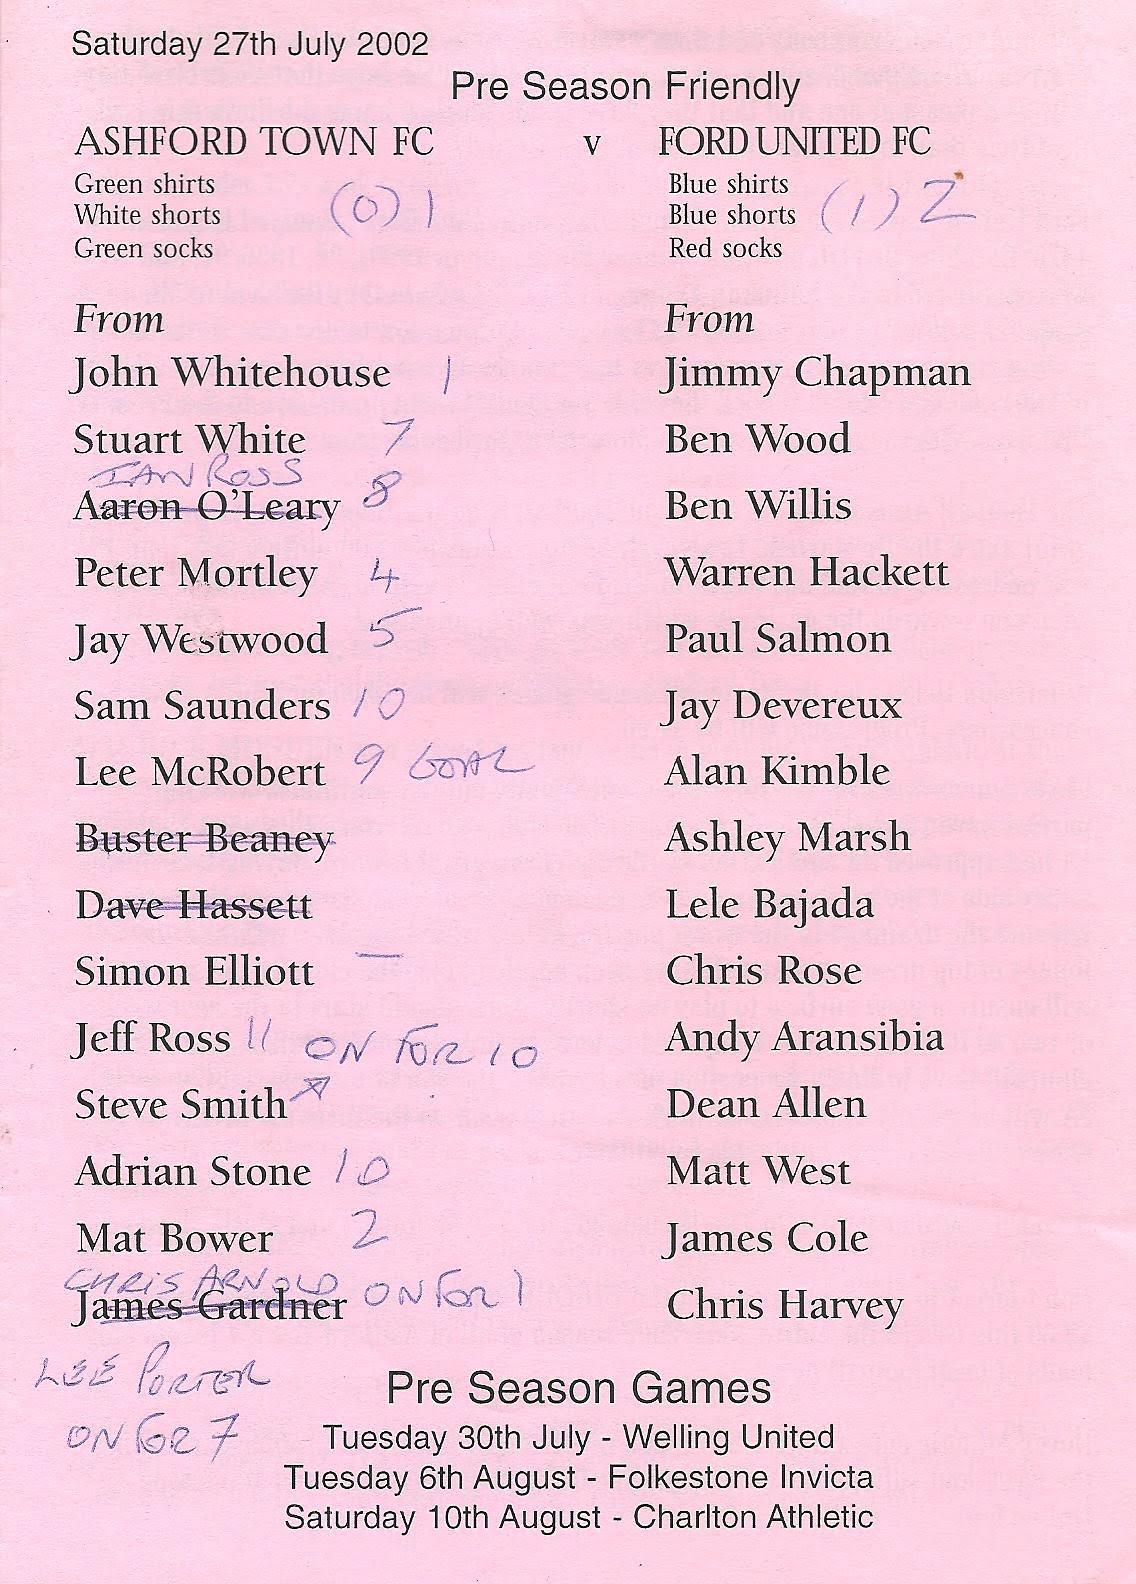 Saturday 27th July 2002
Pre Season Friendly
ASHFORD TOWN FC v FORD UNITED FC
Green shirts Blue shirts
White shorts (0) 1 Blue shorts (1) 2
Green socks Red socks
From From
John Whitehouse 1 Jimmy Chapman
Stuart White 7 Ben Wood
IAN ROSS
Aaron O'Leary 8 Ben Willis
Peter Mortley 4 Warren Hackett
Jay Westwood 5 Paul Salmon
Sam Saunders 10 Jay Devereux
Lee McRobert 9 GOAL Alan Kimble
Buster Beaney Ashley Marsh
Dave Hassett Lele Bajada
Simon Elliott — Chris Rose
Jeff Ross 11 ON FOR 10 Andy Aransibia
Steve Smith Dean Allen
Adrian Stone 10 Matt West
Mat Bower 2 James Cole
CHRIS ARNOLD ON FOR 1
James Gardner Chris Harvey
LEE PORTER
ON FOR 7
Pre Season Games
Tuesday 30th July - Welling United
Tuesday 6th August - Folkestone Invicta
Saturday 10th August - Charlton Athletic